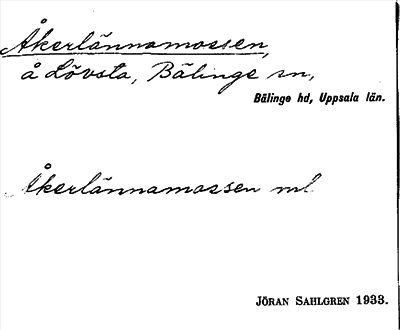 Åkerlännamossen,
å Lövsta, Bälinge sn,
Bälinge hd, Uppsala län.
Åkerlännamossen ml
JÖRAN SAHLGREN 1933.